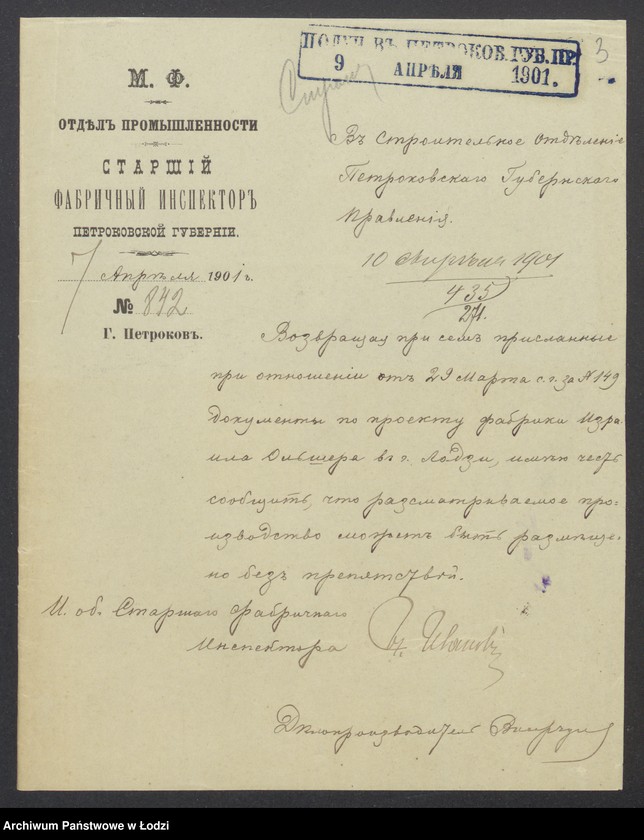 ПОЛУЧ. ВЪ ПЕТРОКОВ. ГУБ. ПР.
9 АПРѢЛЯ 1901.
3
М. Ф.
ОТДѢЛЪ ПРОМЫШЛЕННОСТИ
СТАРШІЙ
ФАБРИЧНЫЙ ИНСПЕКТОРЪ
ПЕТРОКОВСКОЙ ГУБЕРНІИ.
7 Апрѣля 1901 г.
№ 842
Г. Петроковъ.
Въ Строительное Отдѣленіе
Петроковскаго Губернскаго
Правленія.
10 Апрѣля 1901
435
Возвращая при семъ присланные
при отношеніи отъ 29 Марта с. г. за № 149
документы по проекту фабрики Изра-
иля Ольшера въ г. Лодзи, имѣю честь
сообщить, что разсматриваемое про-
изводство можетъ быть размѣще-
но безъ препятствій.
И. об. Старшаго Фабричнаго
Инспектора Ивановъ
Дѣлопроизводитель
Archiwum Państwowe w Łodzi